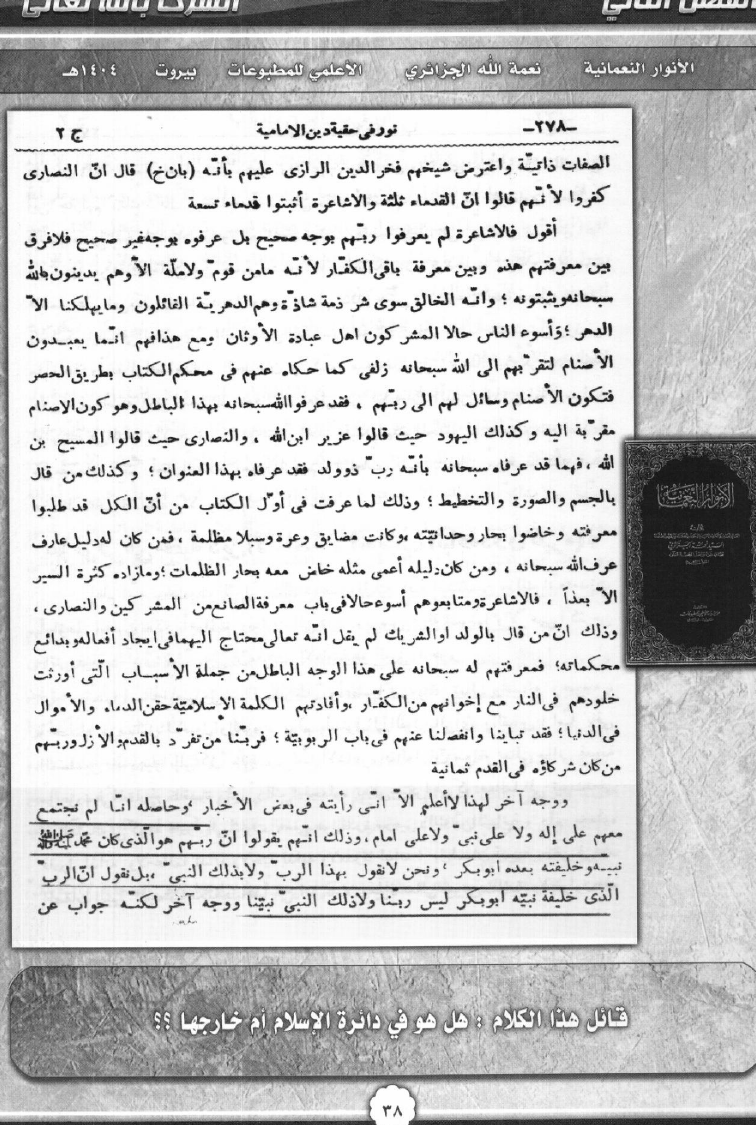 الفصل الثاني
الشرك بالله تعالى
الأنوار النعمانية نعمة الله الجزائري الأعلمي للمطبوعات بيروت ١٤٠٤هـ
-٢٧٨- نور فى حقية دين الامامية ج ٢
الصفات ذاتيّة واعترض شيخهم فخرالدين الرازى عليهم بأنّه (بان خ) قال انّ النصارى
كفروا لأنّهم قالوا انّ القدماء ثلثة والاشاعرة أثبتوا قدماء تسعة
أقول فالاشاعرة لم يعرفوا ربّهم بوجه صحيح بل عرفوه بوجه غير صحيح فلافرق
بين معرفتهم هذه وبين معرفة باقى الكفّار لأنّه مامن قوم ولاملّة الاّ وهم يدينون بالله
سبحانه ويثبتونه ؛ وانّه الخالق سوى شرذمة شاذّة وهم الدهريّة القائلون ومايهلكنا الاّ
الدهر ؛ وَأسوء الناس حالا المشركون اهل عبادة الأوثان ومع هذافهم انّما يعبدون
الأصنام لتقرّبهم الى الله سبحانه زلفى كما حكاه عنهم فى محكم الكتاب بطريق الحصر
فتكون الأصنام وسائل لهم الى ربّهم ، فقد عرفوا الله سبحانه بهذا الباطل وهو كون الاصنام
مقرّبة اليه وكذلك اليهود حيث قالوا عزير ابن الله ، والنصارى حيث قالوا المسيح بن
الله ، فهما قد عرفاه سبحانه بأنّه ربّ ذوولد فقد عرفاه بهذا العنوان ؛ وكذلك من قال
بالجسم والصورة والتخطيط ؛ وذلك لما عرفت فى أوّل الكتاب من أنّ الكل قد طلبوا
معرفته وخاضوا بحار وحدانيّته ،وكانت مضايق وعرة وسبلا مظلمة ، فمن كان له دليل عارف
عرف الله سبحانه ، ومن كان دليله أعمى مثله خاض معه بحار الظلمات ؛ومازاده كثرة السير
الاّ بعداً ، فالاشاعرة ومتابعوهم أسوء حالا فى باب معرفة الصانع من المشركين والنصارى ،
وذلك انّ من قال بالولد او الشريك لم يقل انّه تعالى محتاج اليهما فى ايجاد أفعاله وبدائع
محكماته؛ فمعرفتهم له سبحانه على هذا الوجه الباطل من جملة الأسباب الّتى أورثت
خلودهم فى النار مع إخوانهم من الكفّار ،وأفادتهم الكلمة الإسلاميّة حقن الدماء والأموال
فى الدنيا ؛ فقد تباينا وانفصلنا عنهم فى باب الربوبيّة ؛ فربّنا من تفرّد بالقدم والأزل وربّهم
من كان شركاؤه فى القدم ثمانية
ووجه آخر لهذا لاأعلم الاّ انّى رأيته فى بعض الأخبار ،وحاصله انّا لم نجتمع
معهم على إله ولا على نبىّ ولاعلى امام، وذلك انّهم يقولوا انّ ربّهم هوالّذى كان محمّد
نبيّه وخليفته بعده ابوبكر ، ونحن لانقول بهذا الربّ ولابذلك النبىّ ،بل نقول انّ الربّ
الّذى خليفة نبيّه ابوبكر ليس ربّنا ولاذلك النبىّ نبيّنا ووجه آخر لكنّه جواب عن
الأنوار النعمانية
قائل هذا الكلام : هل هو في دائرة الإسلام أم خارجها ؟؟
٣٨